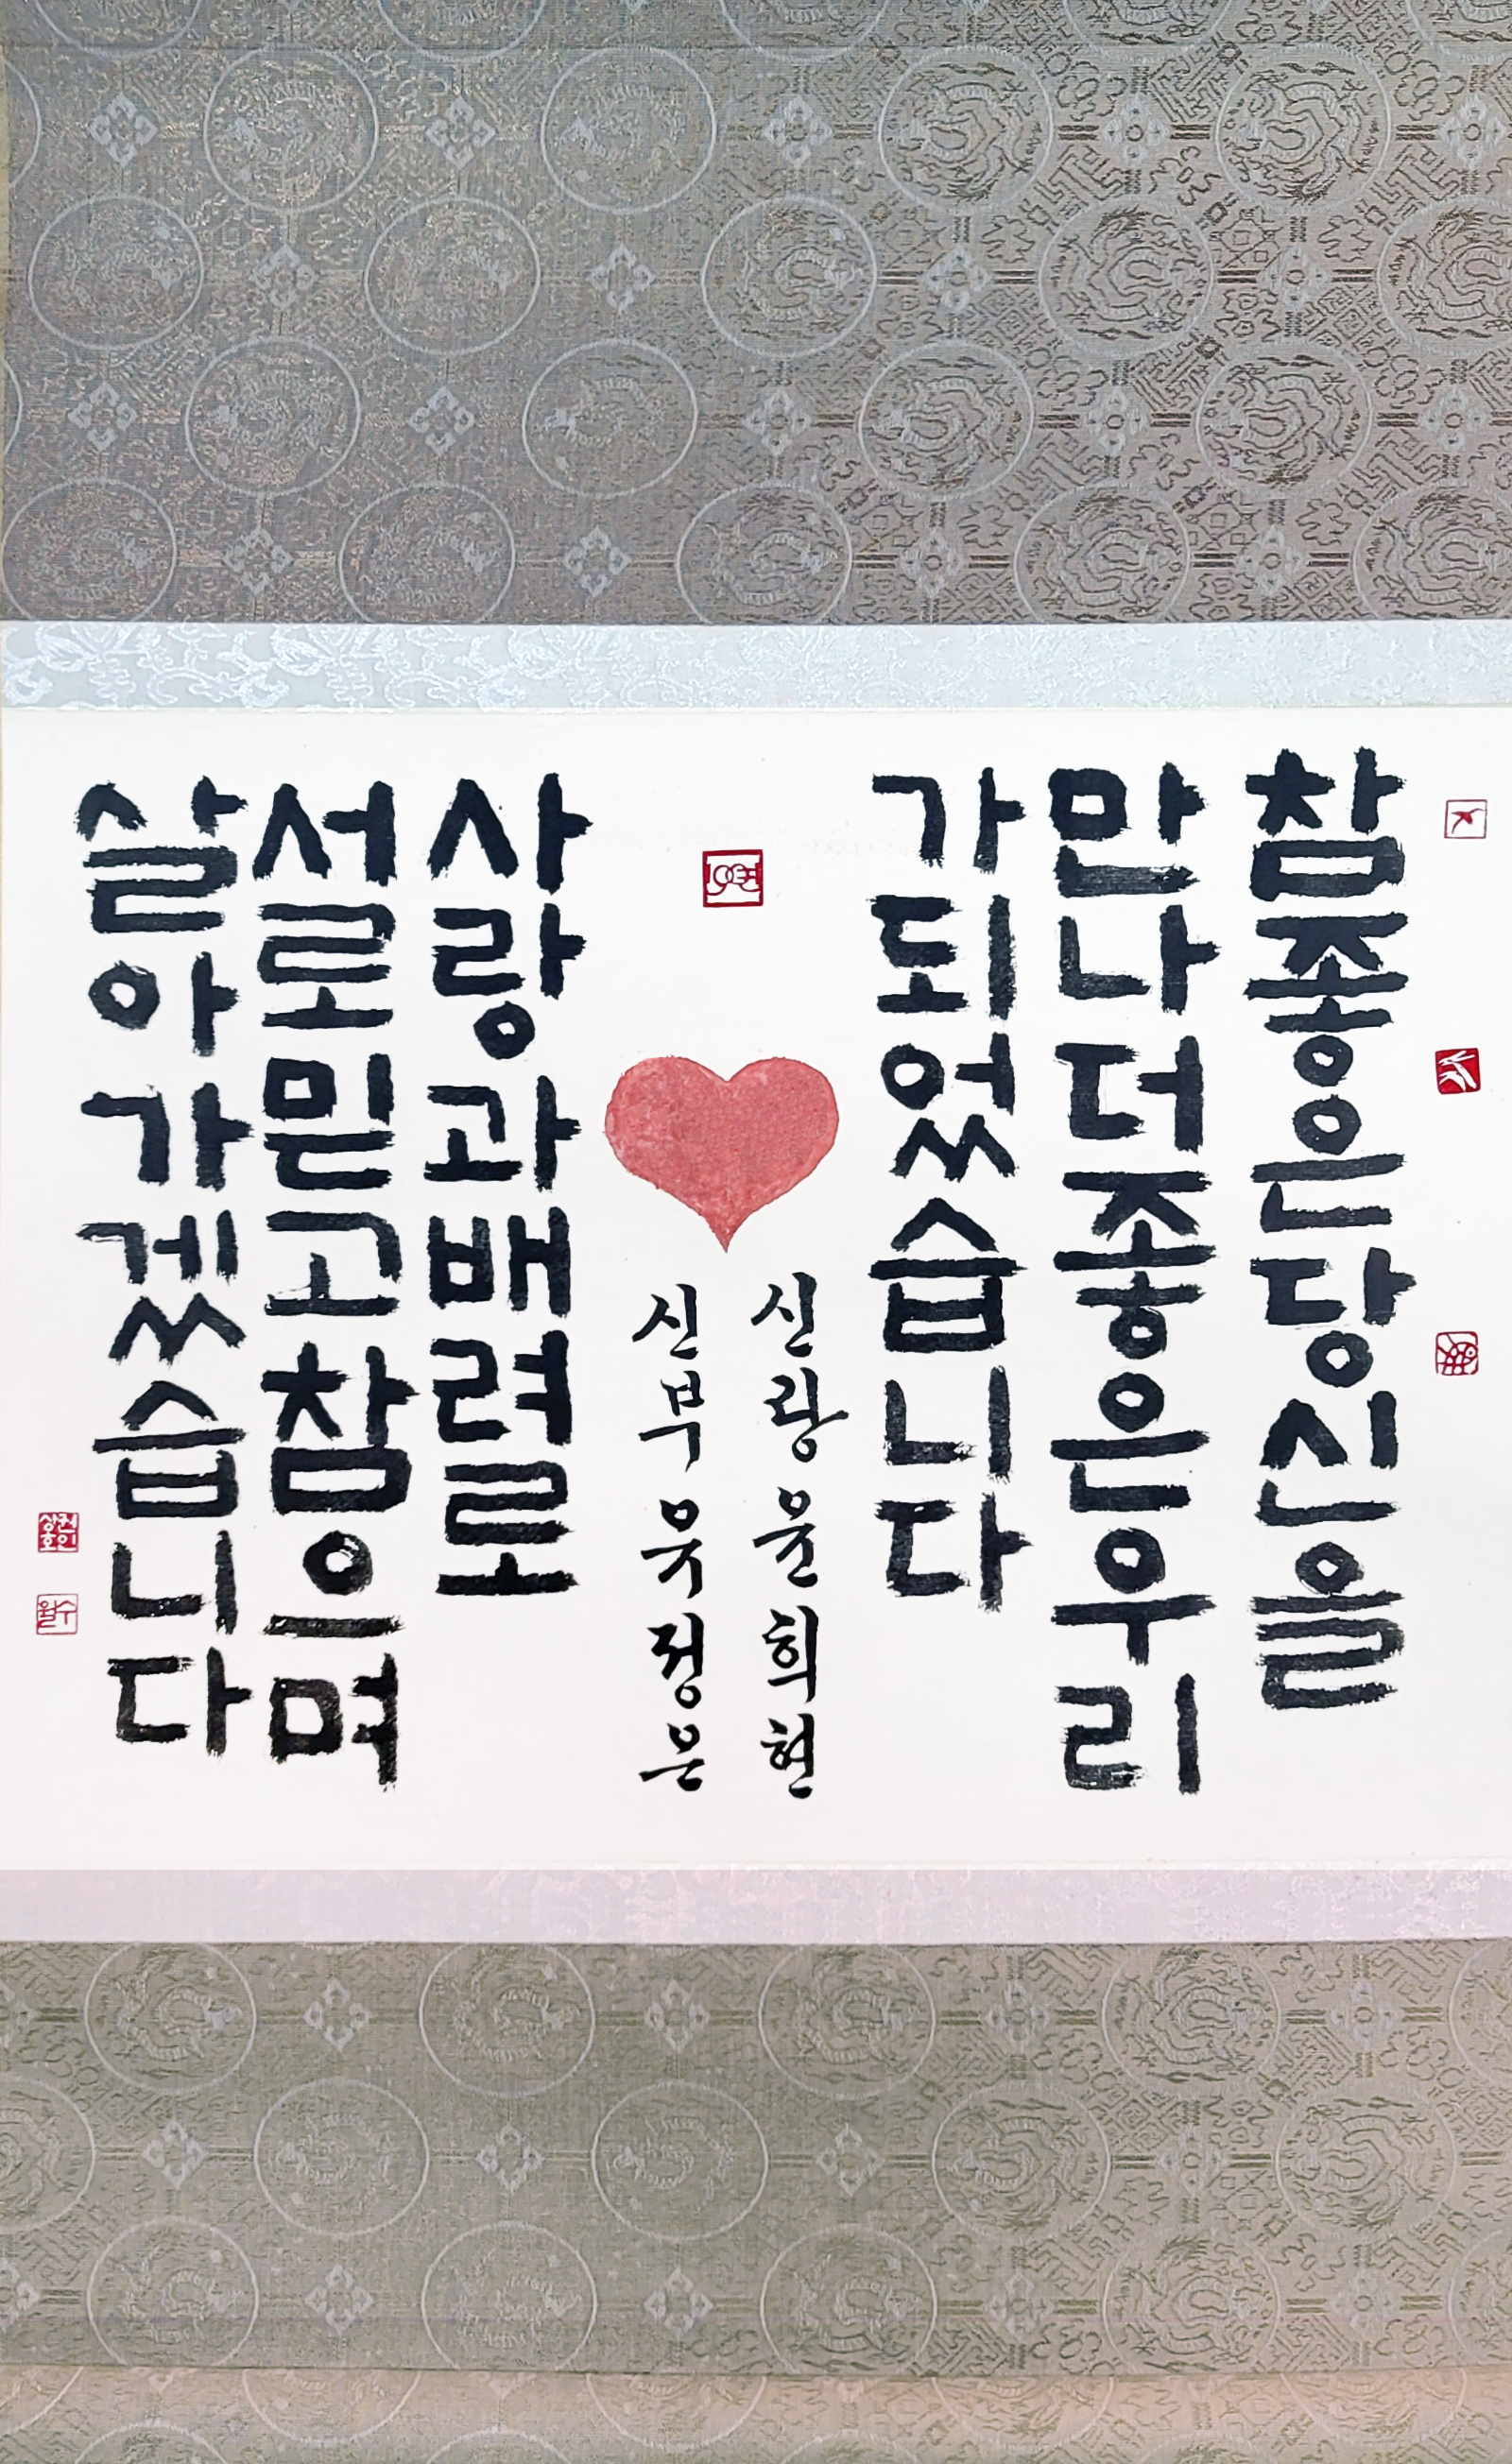 참좋은당신을
만나더좋은우리
가되었습니다
신랑윤희현
신부유정은
사랑과배려로
서로믿고참으며
살아가겠습니다